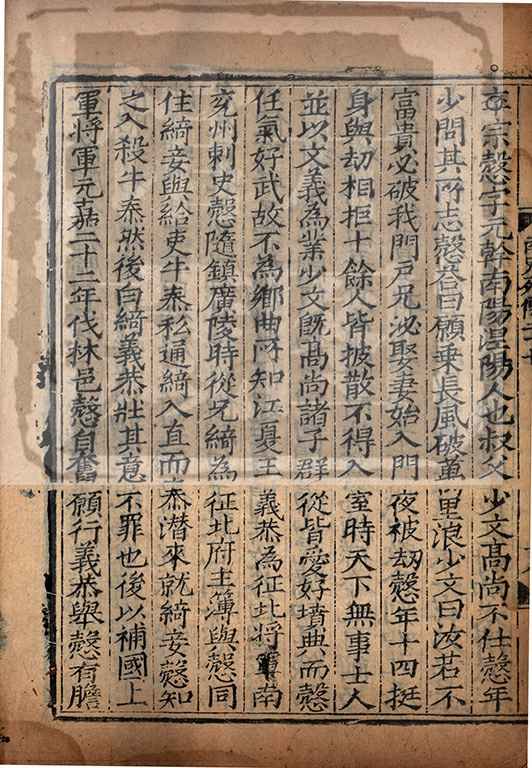 宗慤字元幹南陽涅陽人也叔父少文髙尚不仕慤年
少問其所志慤荅曰願乗長風破萬里浪少文曰汝若不
富貴必破我門戶兄泌娶妻始入門夜被劫慤年十四挺
身與劫相拒十餘人皆披散不得入室時天下無事士人
並以文義為業少文旣髙尚諸子群從皆愛好墳典而慤
任氣好武故不為鄉曲所知江夏王義恭為征北將軍南
兗州刺史慤隨鎮廣陵時從兄綺為征北府主簿與慤同
住綺妾與給吏牛泰私通綺入直而泰潜來就綺妾慤知
之入殺牛泰然後白綺義恭壯其意不罪也後以補國上
軍將軍元嘉二十二年伐林邑慤自奮願行義恭舉慤有膽